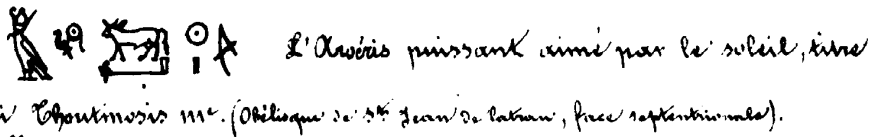 L'Aroéris puissant aimé par le soleil, titre
Thoutmosis III<sup>e</sup>. (Obélisque de S<sup>t</sup> Jean de Latran, face septentrionale).